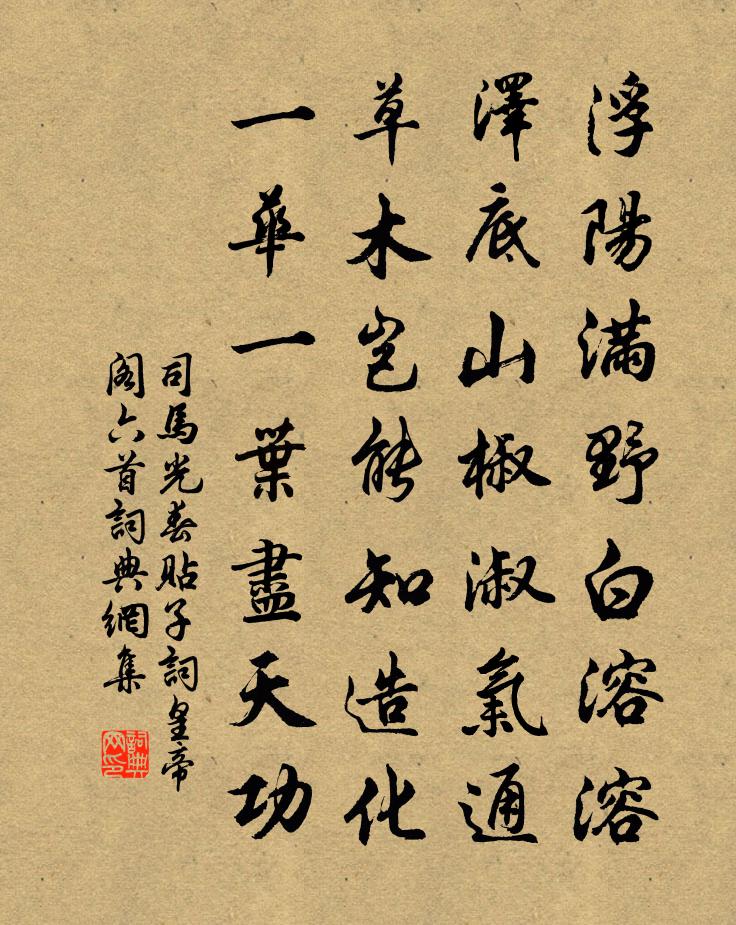 浮陽滿野白溶溶
澤底山椒淑氣通
草木豈能知造化
一華一葉盡天功
司馬光春貼子詞皇帝
閣六首詞典網集
詞典
网印